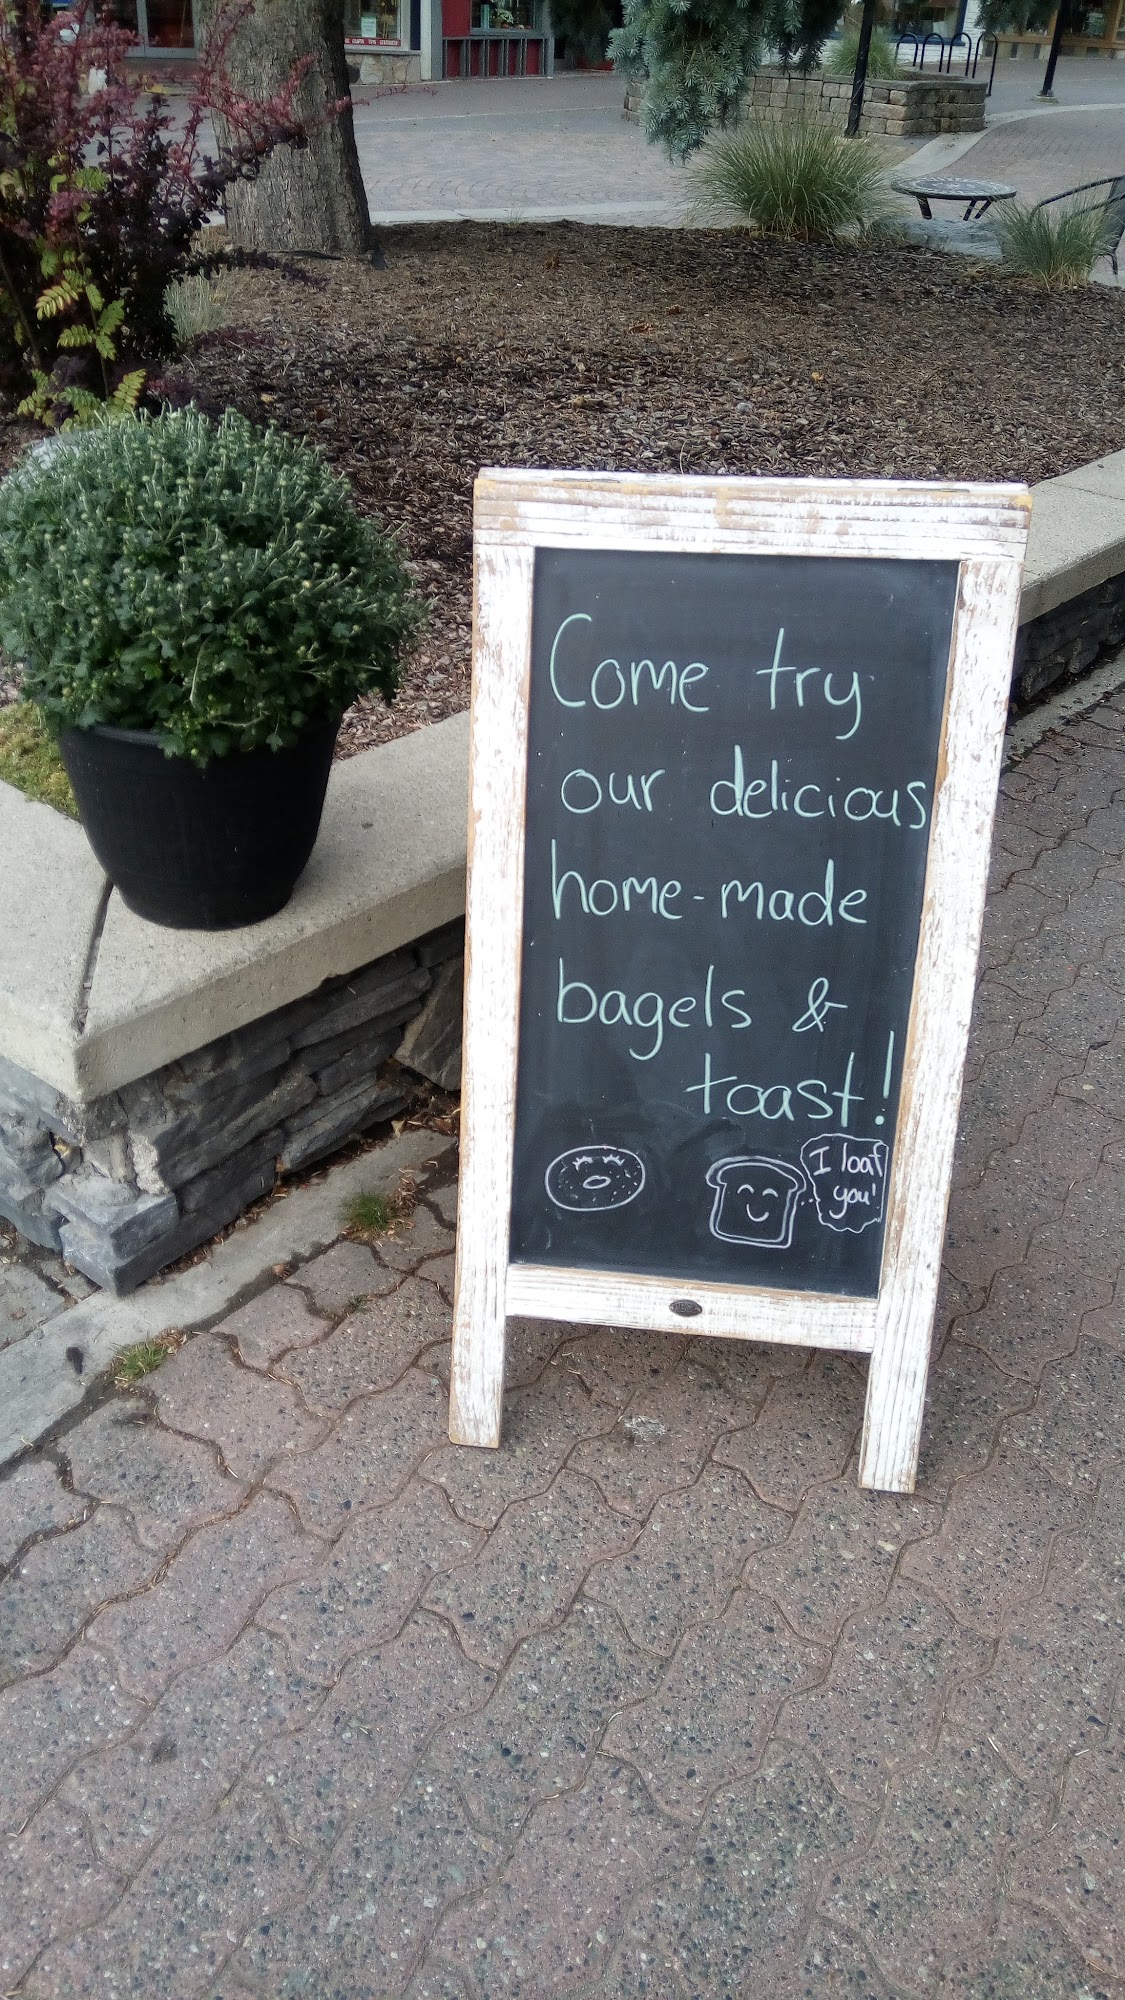 Come try
our delicious
home-made
bagels &
toast!
I loaf
you!